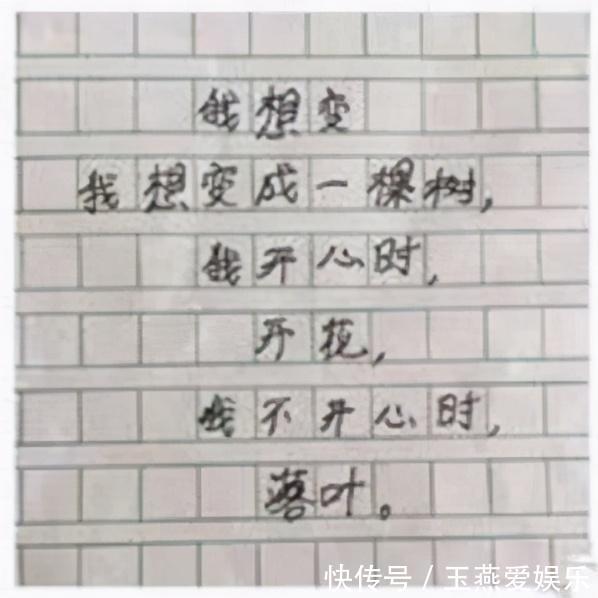 我想变
我想变成一棵树，
我开心时，
开花，
我不开心时，
落叶。
快传号 / 玉燕爱娱乐